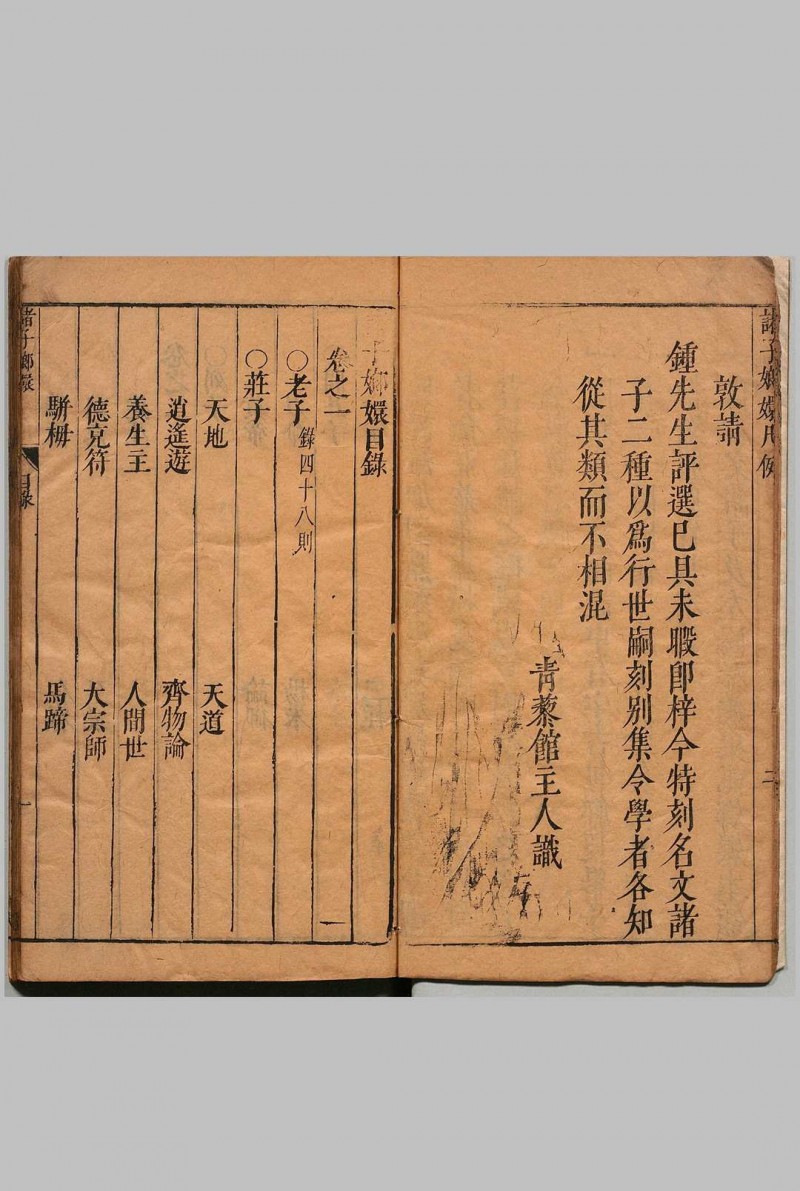 敦請
鍾先生評選已具未暇即梓今特刻名文諸
子二種以爲行世嗣刻别集令學者各知
從其類而不相混
青藜館主人識
諸子嫏嬛凡例
二
子嫏嬛目錄
卷之一
○老子 錄四十八則
○莊子
天地 天道
逍遙遊 齊物論
養生主 人間世
德充符 大宗師
駢拇 馬蹄
諸子嫏嬛 目錄 一